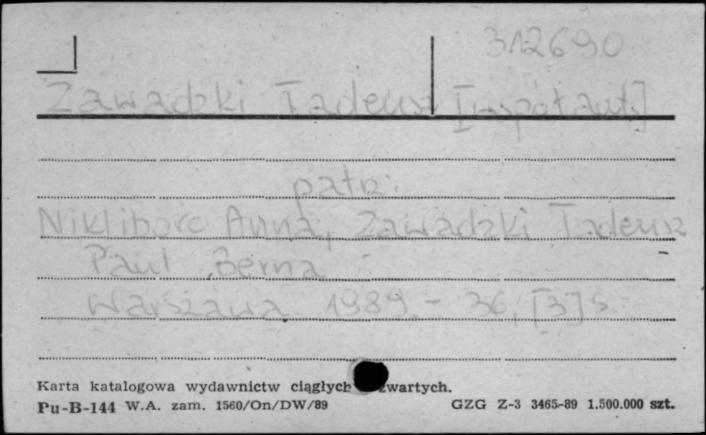 312690
Zawadzki Tadeusz [współaut.]
patrz:
Nikliborc Anna, Zawadzki Tadeusz
Paul Berna
Warszawa 1989.- 36, [3] s.
Karta katalogowa wydawnictw ciągłych zwartych.
Pu-B-144 W.A. zam. 1560/On/DW/89 GZG Z-3 3465-89 1.500.000 szt.